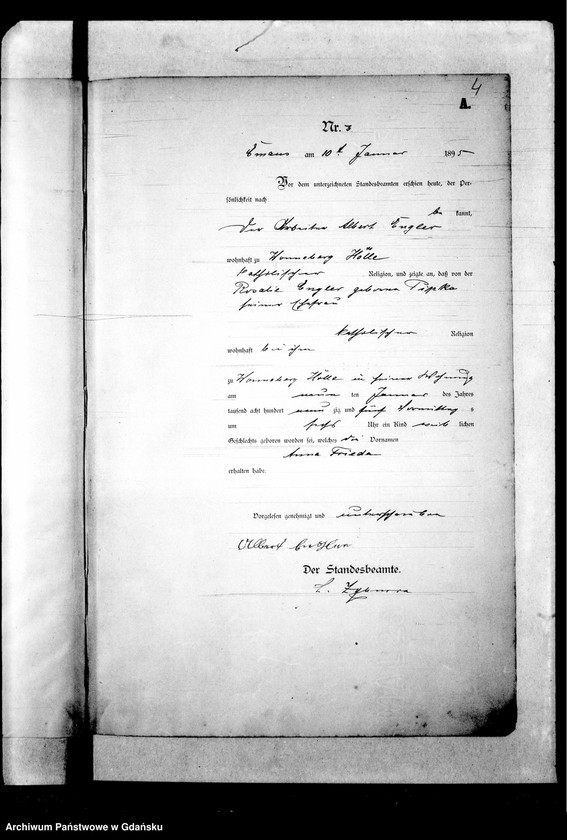 4
A.
Nr. 3
Emaus am 10t Januar 1895
Vor dem unterzeichneten Standesbeamten erschien heute, der Per-
sönlichkeit nach
be kannt,
der Arbeiter Albert Engler
wohnhaft zu Wonneberg Hölle
katholischer Religion, und zeigte an, daß von der
Rosalie Engler geborene Pipka
seiner Ehefrau
katholischer Religion
wohnhaft bei ihm
zu Wonneberg Hölle in seiner Wohnung
am neun ten Januar des Jahres
tausend acht hundert neun zig und fünf Vormittag s
um sechs Uhr ein Kind weib lichen
Geschlechts geboren worden sei, welches die Vornamen
Anna Frieda
erhalten habe.
Vorgelesen genehmigt und unterschrieben
Albert
Der Standesbeamte.
Archiwum Państwowe w Gdańsku